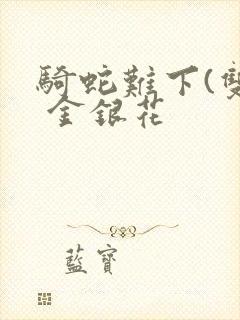 騎蛇難下(雙
金銀花
藍寶